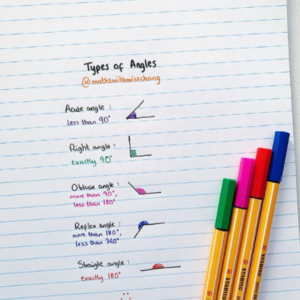 Types of Angles
@mathswithmisschang
Acute angle :
less than 90°
Right angle :
exactly 90°
Obtuse angle :
more than 90°,
less than 180°
Reflex angle :
more than 180°,
less than 360°
Straight angle :
exactly 180°